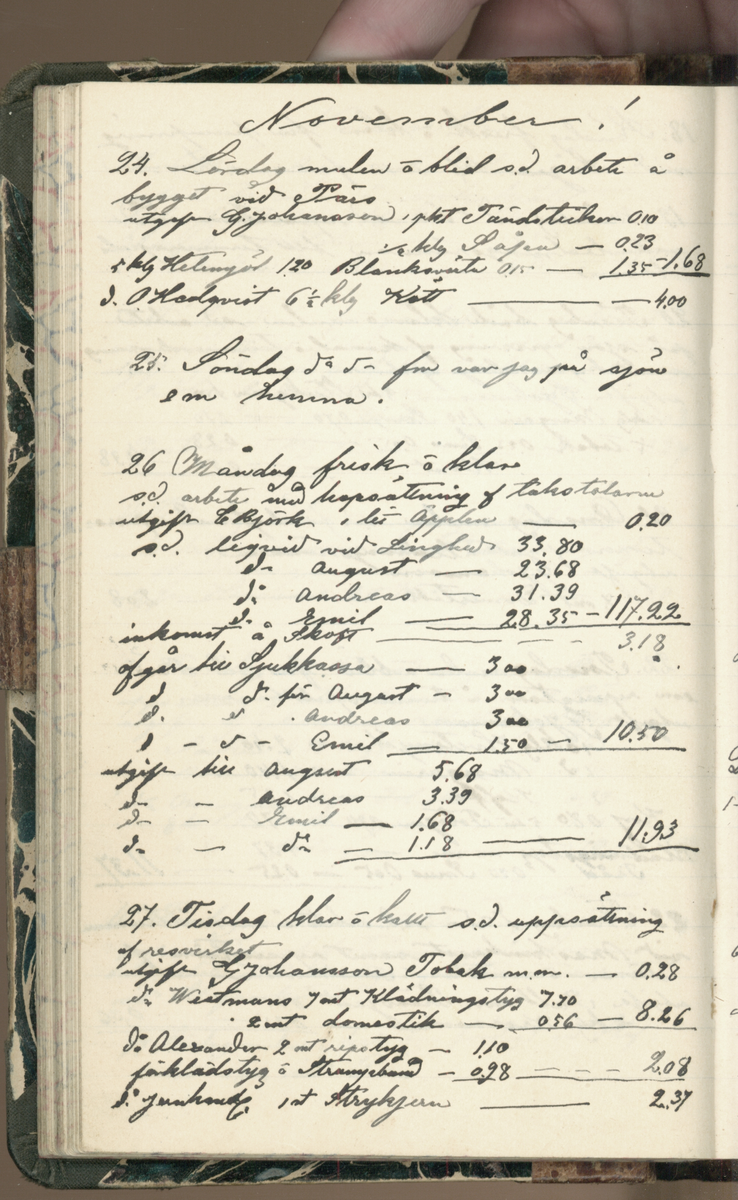 November!
24. Lördag mulen ō blid s.d. arbete å
bygget vid Pärs
utgift G. Johansson 1 pkt Tändstickor 0.10
1/2 klg Såpa — 0.23
5 klg Hetemjöl 1.20 Blanksvärta 0.15 — 1.35 - 1.68
d. O Hedqvist 6 1/2 klg Kött — 4.00
25. Söndag do do fm var jag på sjön
em hemma.
26 Måndag frisk ō klar
s.d. arbete med hopsättning af takstolarne
utgift E Björk 1 lit Äpplen — 0.20
s.d. liqvid vid Linghed 33.80
do August — 23.68
do Andreas — 31.39
do Emil — 28.35 - 117.22
inkomst å Skoft — 3.18
afgår till Sjukkassa — 3 00
d do för August — 3 00
d. d Andreas 3 00
d - d - Emil — 1.50 — 10.50
utgift till August 5.68
do — Andreas 3.39
do — Emil — 1.68
do — do — 1.18 — 11.93
27. Tisdag klar ō kallt s.d. uppsättning
af resvirket
utgift G Johansson Tobak m.m. — 0.28
do Westmans 7 mt Klädningstyg 7.70
2 mt domestik — 0.56 — 8.26
do Alexander 2 mt ripstyg — 1.10
förklädstyg ō Strumpeband — 0.98 — 2.08
do 1 st Strykjern — 2.37